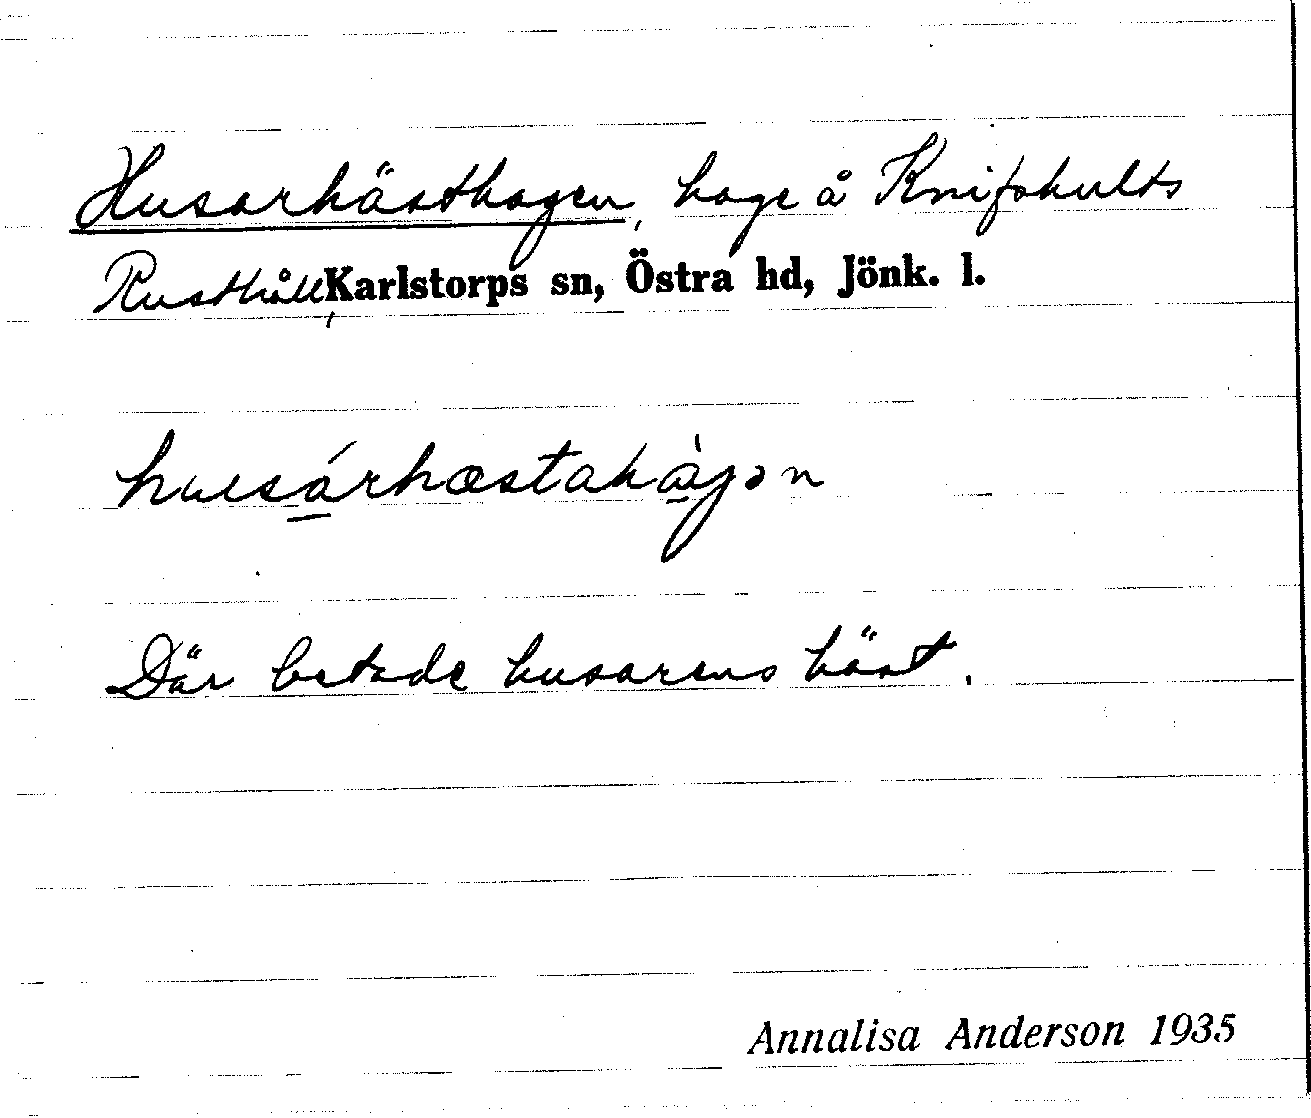 Husarhästhagen, hage å Knifskults
Rusthåll, Karlstorps sn, Östra hd, Jönk. l.
husárhæstahàgən
Där betade husarens häst.
Annalisa Anderson 1935